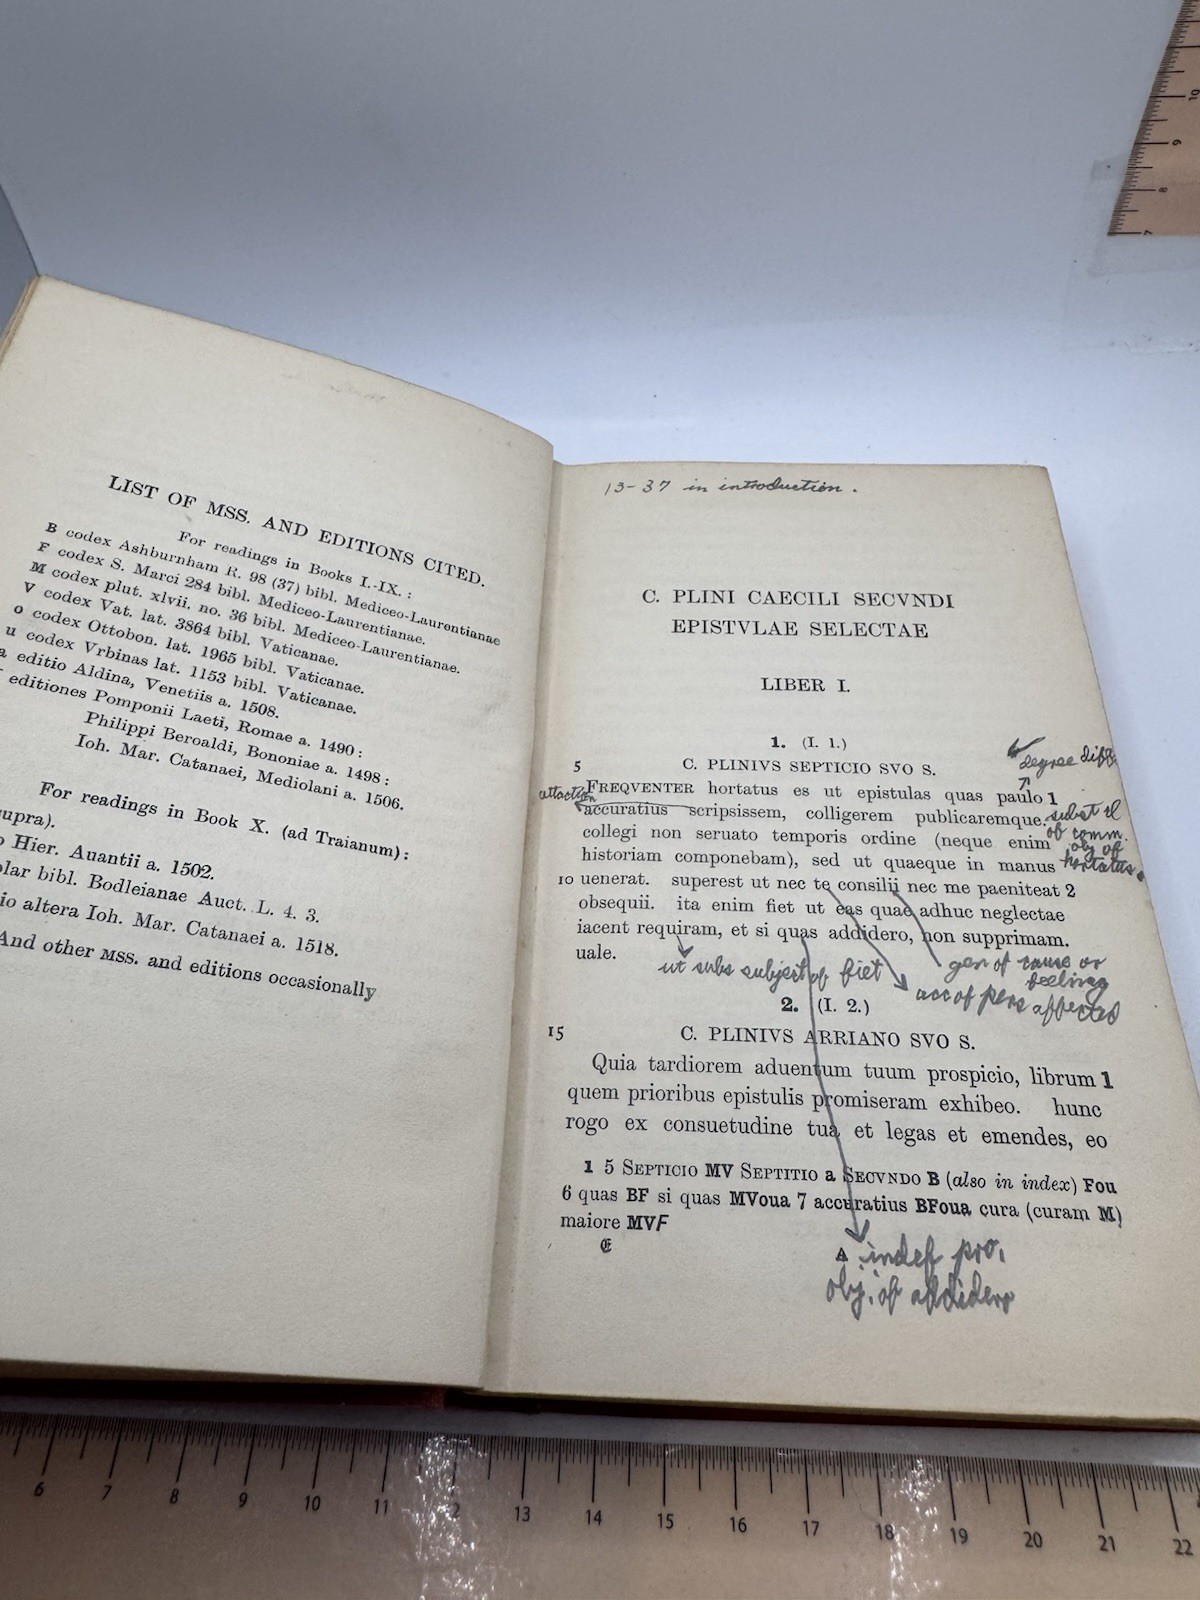 LIST OF MSS. AND EDITIONS CITED.
For readings in Books I.-IX. :
B codex Ashburnham R. 98 (37) bibl. Mediceo-Laurentianae
F codex S. Marci 284 bibl. Mediceo-Laurentianae.
M codex plut. xlvii. no. 36 bibl. Mediceo-Laurentianae.
V codex Vat. lat. 3864 bibl. Vaticanae.
o codex Ottobon. lat. 1965 bibl. Vaticanae.
u codex Vrbinas lat. 1153 bibl. Vaticanae.
a editio Aldina, Venetiis a. 1508.
editiones Pomponii Laeti, Romae a. 1490 :
Philippi Beroaldi, Bononiae a. 1498 :
Ioh. Mar. Catanaei, Mediolani a. 1506.
For readings in Book X. (ad Traianum) :
supra).
Hier. Auantii a. 1502.
bibl. Bodleianae Auct. L. 4. 3.
io altera Ioh. Mar. Catanaei a. 1518.
And other MSS. and editions occasionally
13-37 in introduction.
C. PLINI CAECILI SECVNDI
EPISTVLAE SELECTAE
LIBER I.
1. (I. 1.)
degree diff.
5 C. PLINIVS SEPTICIO SVO S.
FREQVENTER hortatus es ut epistulas quas paulo 1
accuratius scripsissem, colligerem publicaremque.
subst cl
of comm.
obj of
hortatus.
collegi non seruato temporis ordine (neque enim
historiam componebam), sed ut quaeque in manus
10 uenerat. superest ut nec te consilii nec me paeniteat 2
obsequii. ita enim fiet ut eas quae adhuc neglectae
iacent requiram, et si quas addidero, non supprimam.
uale.
ut subs subject of fiet
gen of cause or
feeling
acc of pers affected
2. (I. 2.)
15 C. PLINIVS ARRIANO SVO S.
Quia tardiorem aduentum tuum prospicio, librum 1
quem prioribus epistulis promiseram exhibeo. hunc
rogo ex consuetudine tua et legas et emendes, eo
1 5 SEPTICIO MV SEPTITIO a SECVNDO B (also in index) Fou
6 quas BF si quas MVoua 7 accuratius BFoua cura (curam M)
maiore MVF
E
A
indef pro.
obj. of addidero
6 7 8 9 10 11 12 13 14 15 16 17 18 19 20 21 22
10
9
8
7